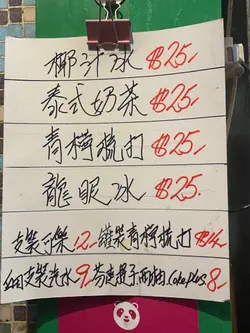 椰汁冰 $25-
泰式奶茶 $25-
青檸梳打 $25-
龍眼冰 $25-
支裝可樂 12- 罐裝青檸梳打 $14-
支裝汽水 9 芬達提子 Coke plus 8-